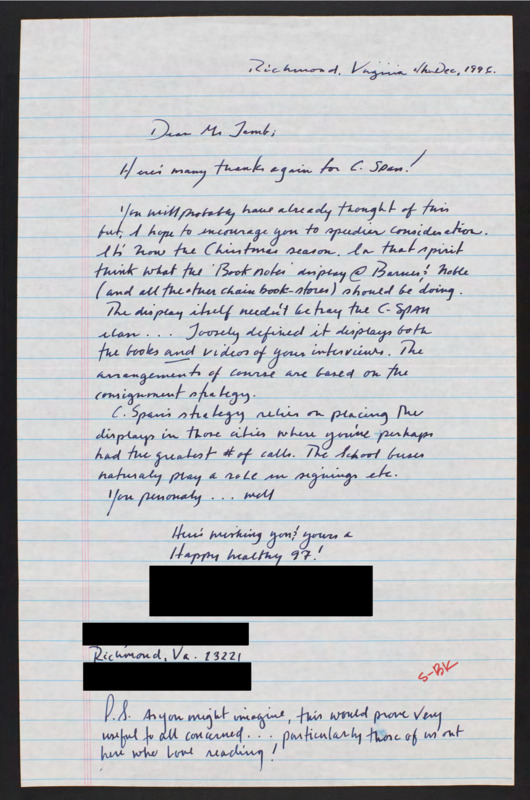 Richmond, Virginia Dec, 1996.
Dear Mr Lamb;
Here's many thanks again for C. Span!
You will probably have already thought of this
but, I hope to encourage you to speedier consideration.
It's now the Christmas season. In that spirit
think what the 'Book notes' display @ Barnes & Noble
(and all the other chain book-stores) should be doing.
The display itself needn't betray the C-SPAN
elan . . . Loosely defined it displays both
the books and videos of your interviews. The
arrangements of course are based on the
consignment strategy.
C. Span's strategy relies on placing the
displays in those cities where you've perhaps
had the greatest # of calls. The School buses
naturaly play a role in signings etc.
You personaly . . . well
Here's wishing you & yours a
Happy healthy 97!
Richmond, Va. 23221
S-BK
P.S. As you might imagine, this would prove very
useful to all concerned . . . particularly those of us out
here who Love reading!